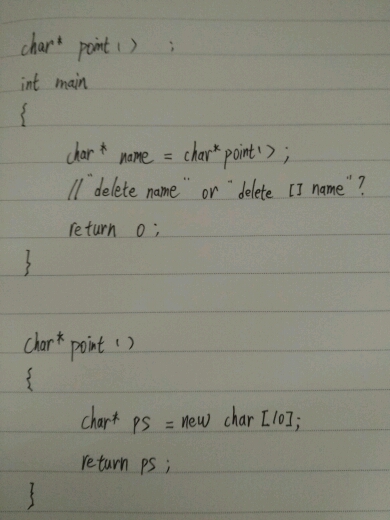 char* point() ;
int main
{
char* name = char*point();
//"delete name" or "delete [] name"?
return 0;
}
char* point()
{
char* ps = new char [10];
return ps;
}